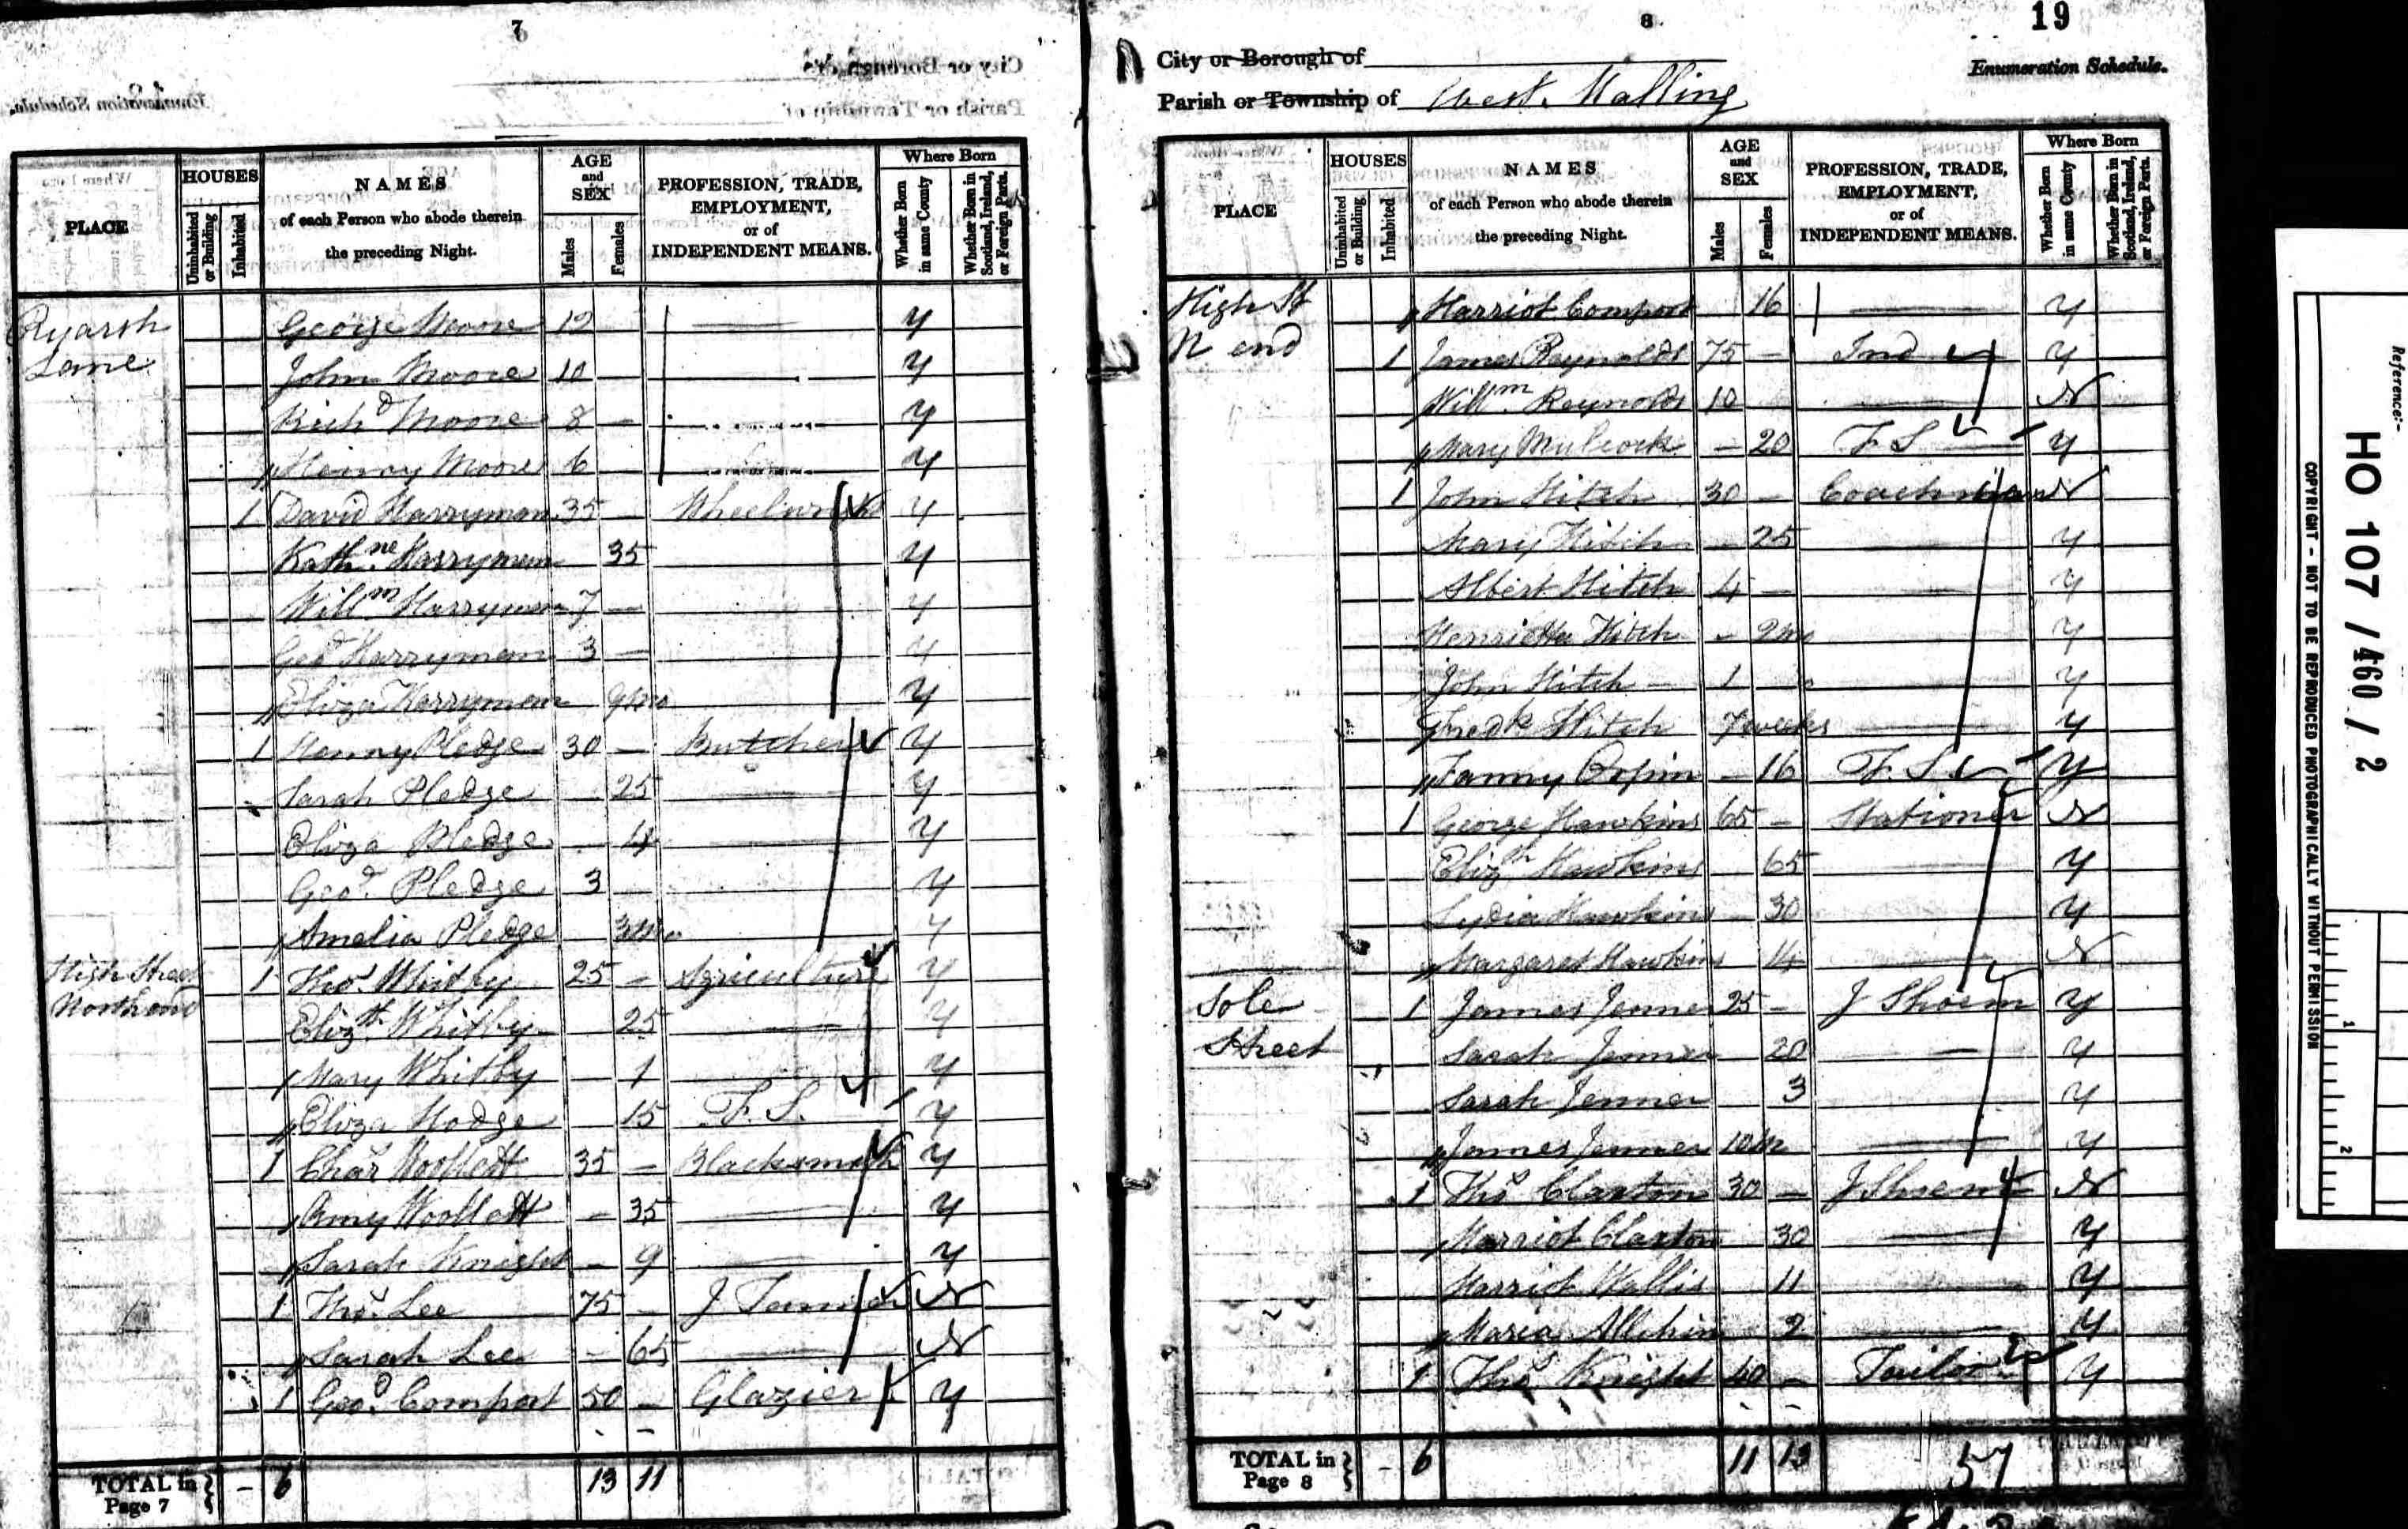 7
PLACE
HOUSES
Uninhabited or Building
Inhabited
NAMES
of each Person who abode therein
the preceding Night.
AGE
and
SEX
Males
Females
PROFESSION, TRADE,
EMPLOYMENT,
or of
INDEPENDENT MEANS.
Where Born
Whether Born in same County
Whether Born in Scotland, Ireland, or Foreign Parts.
Ryarsh Lane
George Moore 12 — Y
John Moore 10 — Y
Richd Moore 8 — Y
Henry Moore 6 — Y
1 David Harryman 35 — Wheelwright Y
Kathne Harryman 35 Y
Willm Harryman 7 — Y
Geo Harryman 3 — Y
Eliza Harryman 9 mo Y
1 Henry Pledge 30 — Butcher Y
Sarah Pledge 25 — Y
Eliza Pledge 4 — Y
Geo. Pledge 3 — Y
Amelia Pledge 3 mo Y
High Street North end
1 Thos Whitby 25 — Agriculture Y
Elizth Whitby 25 — Y
Mary Whitby — 1 — Y
Eliza Hodge 15 F. S. Y
1 Chas Woollett 35 — Blacksmith Y
Amy Woollett — 35 — Y
Sarah Knight — 9 — Y
1 Thos. Lee 75 — J Tanner N
Sarah Lee — 65 — N
1 Geo. Comport 50 — Glazier Y
TOTAL in Page 7 — 6 13 11
8
19
City or Borough of
Enumeration Schedule.
Parish or Township of West Malling
PLACE
HOUSES
Uninhabited or Building
Inhabited
NAMES
of each Person who abode therein
the preceding Night.
AGE
and
SEX
Males
Females
PROFESSION, TRADE,
EMPLOYMENT,
or of
INDEPENDENT MEANS.
Where Born
Whether Born in same County
Whether Born in Scotland, Ireland, or Foreign Parts.
High St N end
Harriot Comport 16 — Y
1 James Reynolds 75 — Ind Y
Willm Reynolds 10 — N
Mary Mulcock — 20 F. S. Y
1 John Hitch 30 — Coachman N
Mary Hitch — 25 Y
Albert Hitch 4 — Y
Henrietta Hitch — 2 mo Y
John Hitch 1 — Y
Fredk Hitch 7 weeks — Y
Fanny — 16 F. S. Y
1 George Hawkins 65 — Stationer N
Elizth Hawkins 65 — Y
Lydia Hawkins — 30 — Y
Margaret Hawkins 14 — N
Sole Street
1 James Jenner 25 — J Shoem Y
Sarah Jenner 20 — Y
Sarah Jenner 3 — Y
James Jenner 10 m — Y
1 Thos Claxton 30 — J Shoem N
Harriot Claxton 30 — Y
Harriot Wallis 11 — Y
Maria Allchin 2 — Y
1 Thos Knight 40 — Tailor Y
TOTAL in Page 8 — 6 11 13
57
Reference:-
HO 107 / 460 / 2
COPYRIGHT - NOT TO BE REPRODUCED PHOTOGRAPHICALLY WITHOUT PERMISSION
1
2